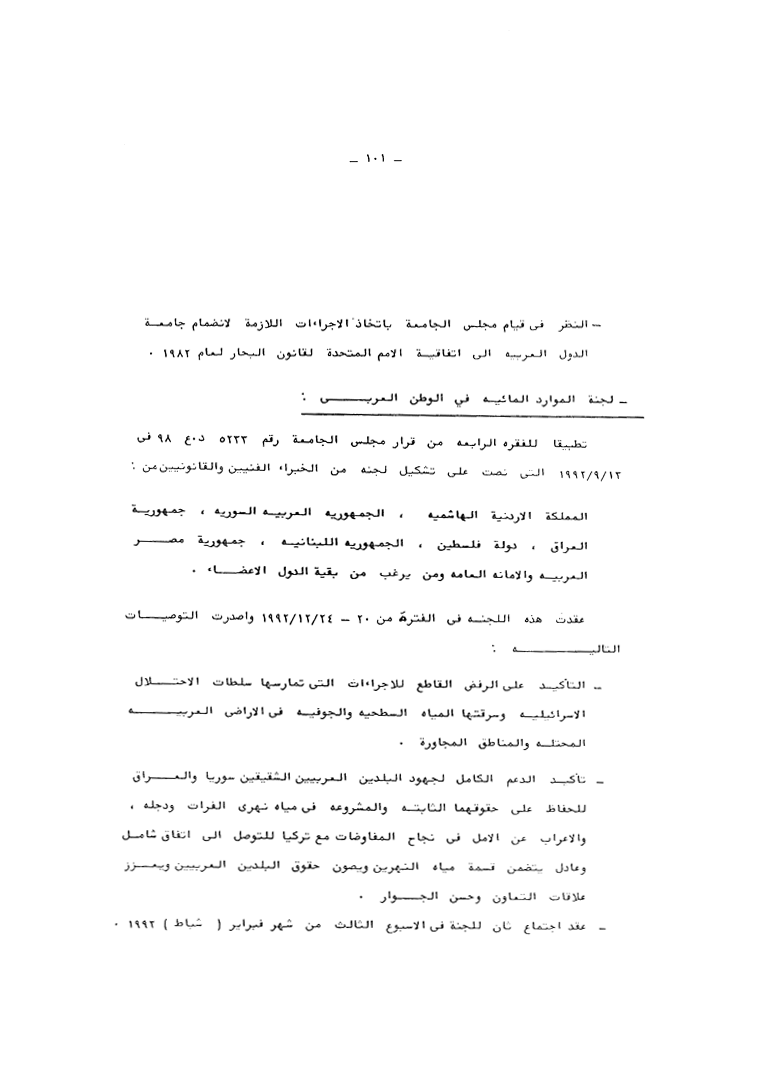 – ١٠١ –
– النظر فى قيام مجلس الجامعة باتخاذ الاجراءات اللازمة لانضمام جامعة
الدول العربيه الى اتفاقية الامم المتحدة لقانون البحار لعام ١٩٨٢ .
– لجنة الموارد المائيه في الوطن العربى :
تطبيقا للفقره الرابعه من قرار مجلس الجامعة رقم ٥٢٣٣ د٠ع ٩٨ فى
١٩٩٢/٩/١٣ التى نصت على تشكيل لجنه من الخبراء الفنيين والقانونيين من :
المملكة الاردنية الهاشميه ، الجمهوريه العربيه السوريه ، جمهورية
العراق ، دولة فلسطين ، الجمهوريه اللبنانيه ، جمهورية مصر
العربيه والامانه العامه ومن يرغب من بقية الدول الاعضاء .
عقدت هذه اللجنه فى الفترة من ٢٠ – ١٩٩٢/١٢/٢٤ واصدرت التوصيات
التاليه :
– التأكيد على الرفض القاطع للاجراءات التى تمارسها سلطات الاحتلال
الاسرائيليه وسرقتها المياه السطحيه والجوفيه فى الاراضى العربيه
المحتله والمناطق المجاورة .
– تأكيد الدعم الكامل لجهود البلدين العربيين الشقيقين سوريا والعراق
للحفاظ على حقوقهما الثابته والمشروعه فى مياه نهرى الفرات ودجله ،
والاعراب عن الامل فى نجاح المفاوضات مع تركيا للتوصل الى اتفاق شامل
وعادل يتضمن قسمة مياه النهرين ويصون حقوق البلدين العربيين ويعزز
علاقات التعاون وحسن الجوار .
– عقد اجتماع ثان للجنة فى الاسبوع الثالث من شهر فبراير ( شباط ) ١٩٩٣ .